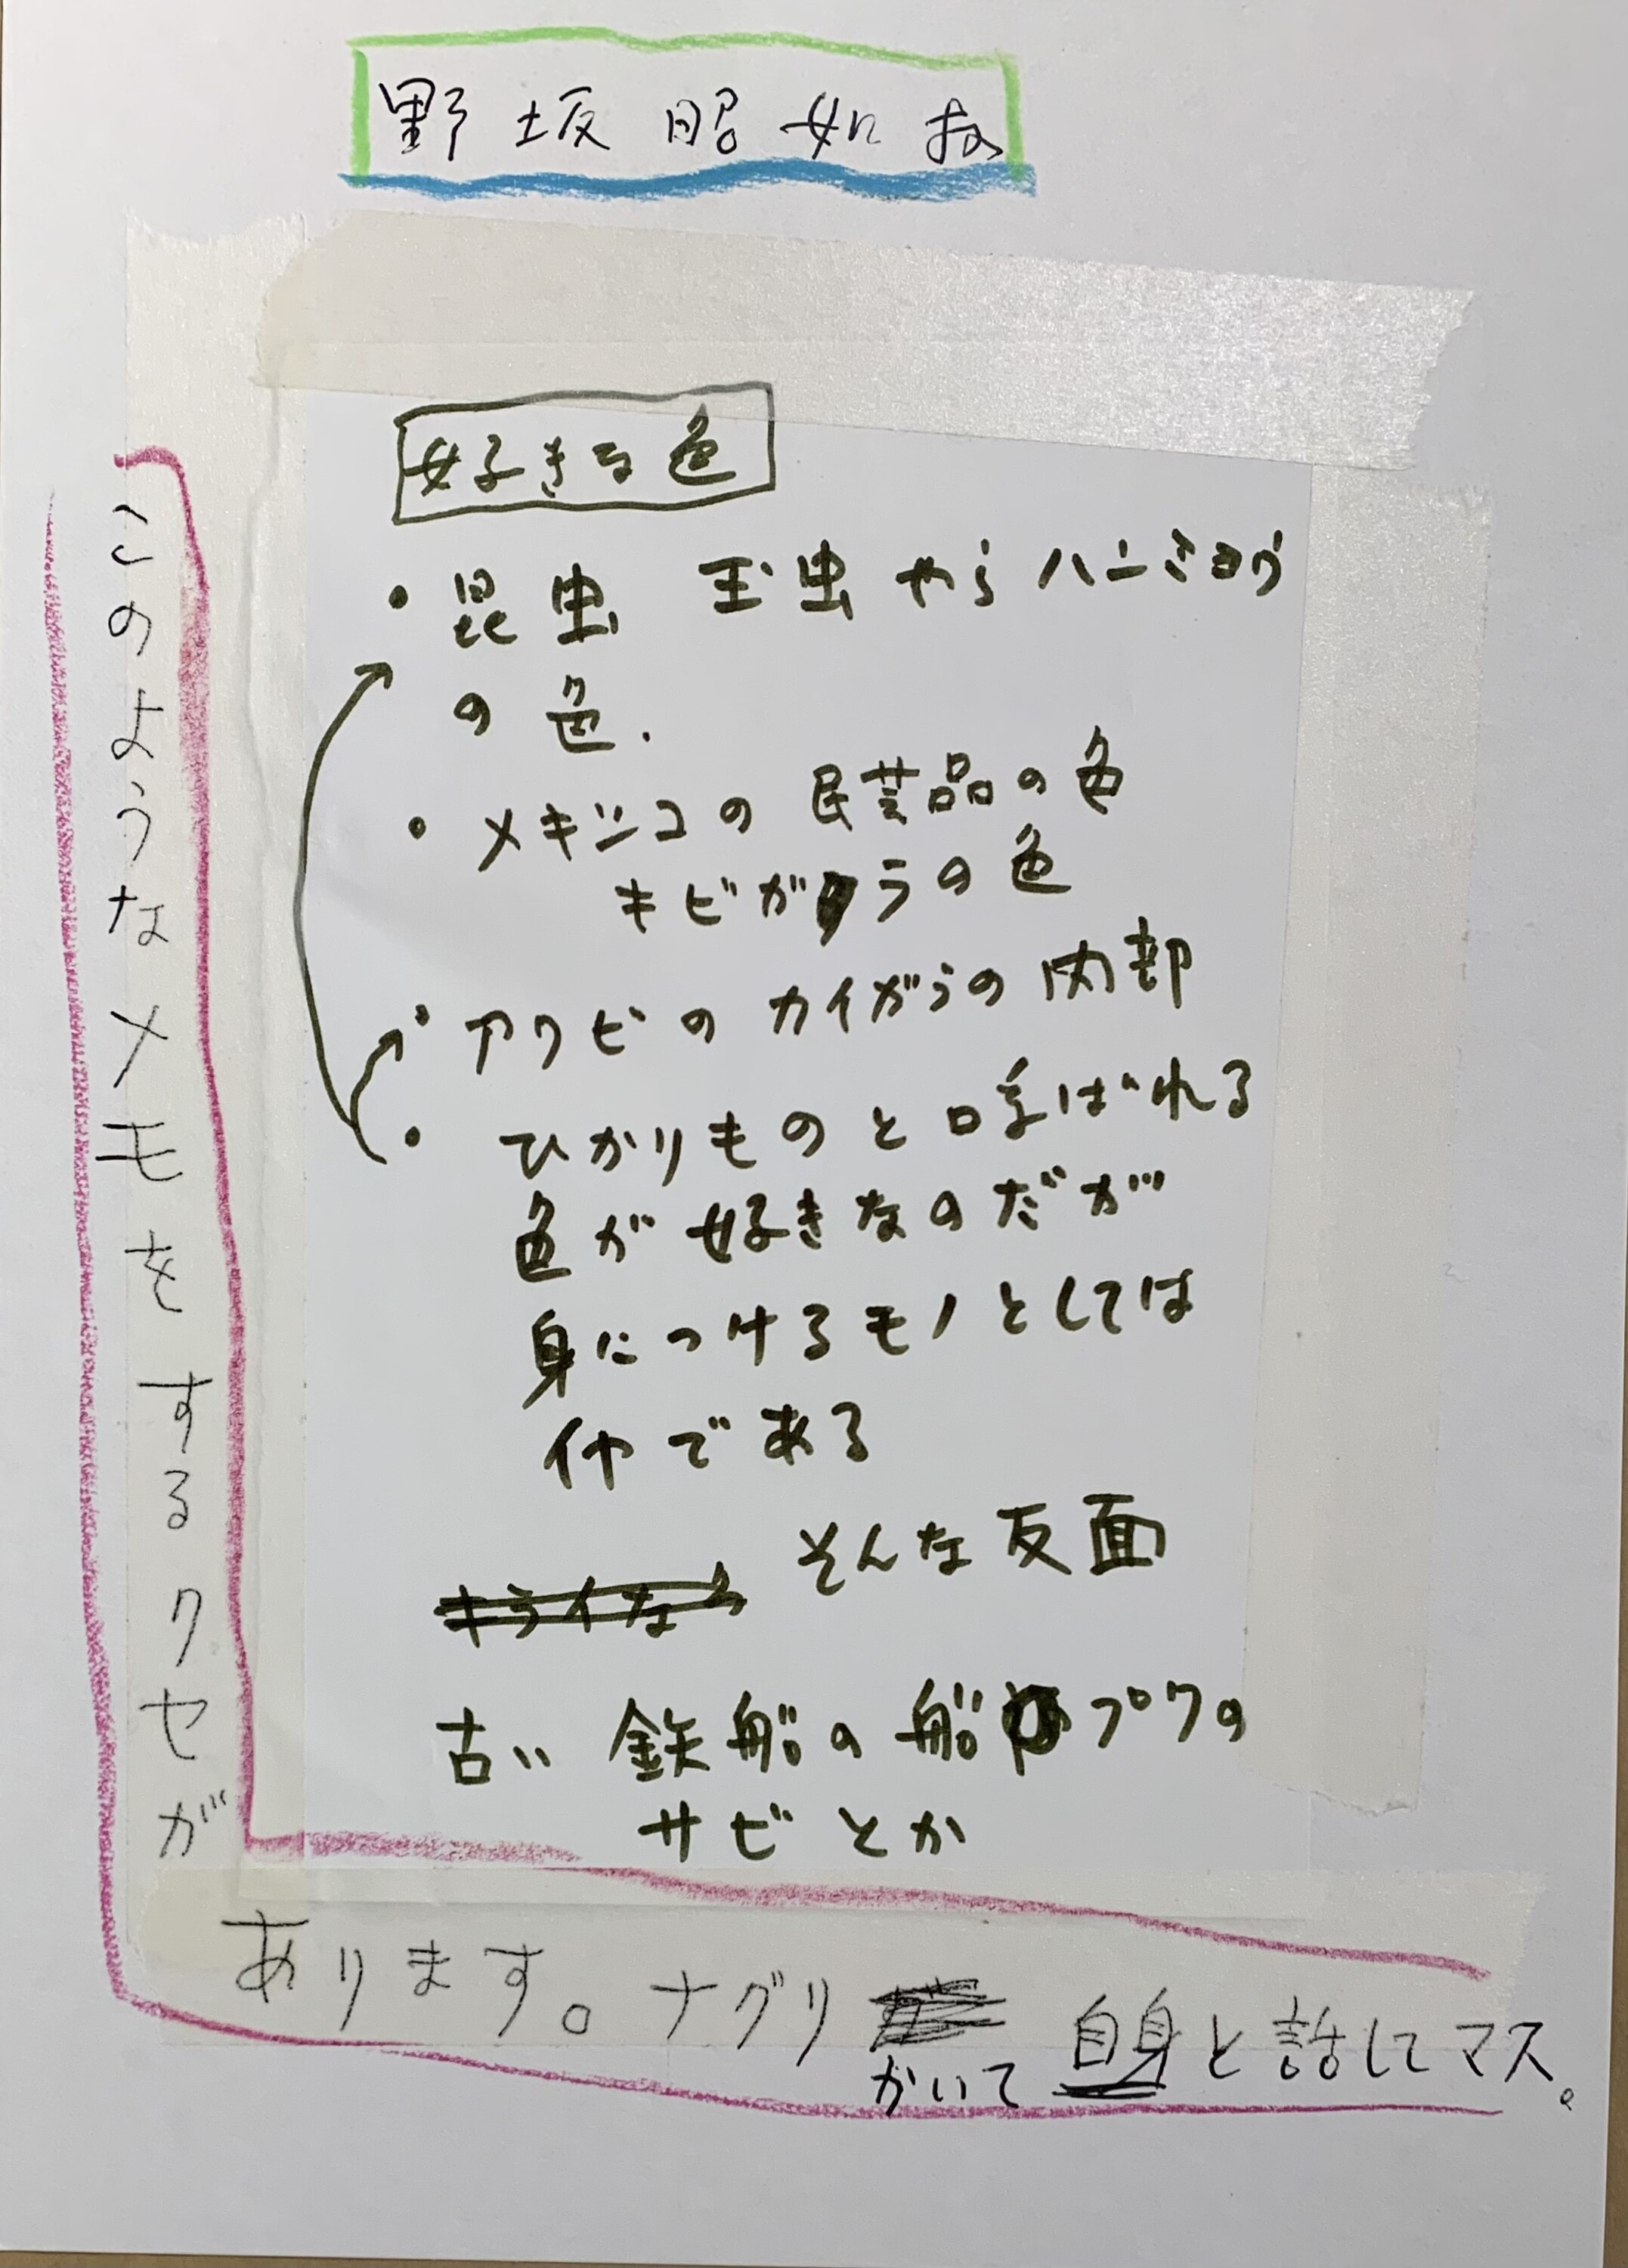 野坂昭如
好きな色
・昆虫 玉虫やらハンミョウ
の色.
・メキシコの民芸品の色
キビガラの色
・アワビのカイガラの内部
・ひかりものと呼ばれる
色が好きなのだが
身につけるモノとしては
イヤである
そんな反面
キライな
古い鉄船の船プクの
サビとか
このようなメモをするクセが
あります。ナグリ
かいて 自身と話してマス。